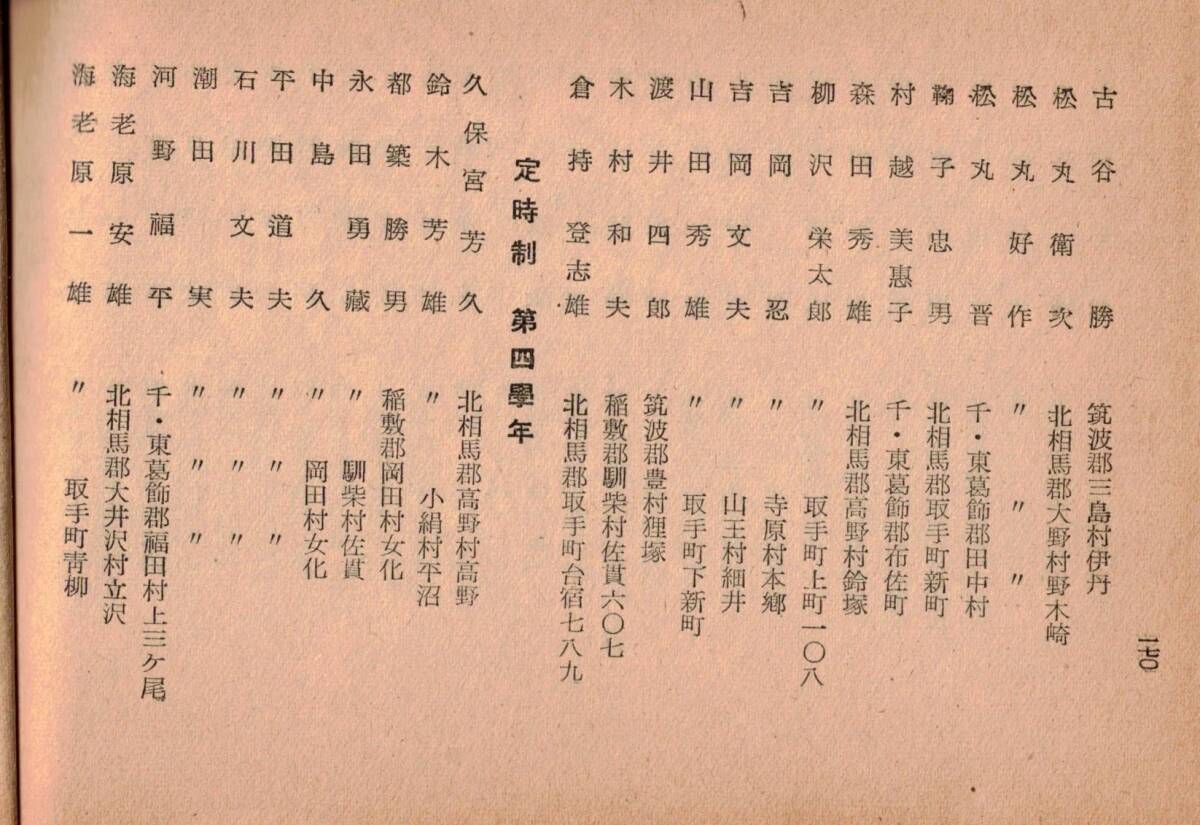 一七〇
古谷勝 筑波郡三島村伊丹
松丸衛次 北相馬郡大野村野木崎
松丸好作 〃 〃 〃
松丸晋 千・東葛飾郡田中村
鞠子忠男 北相馬郡取手町新町
村越美惠子 千・東葛飾郡布佐町
森田秀雄 北相馬郡高野村鈴塚
柳沢栄太郎 〃 取手町上町一〇八
吉岡忍 〃 寺原村本郷
吉岡文夫 〃 山王村細井
山田秀雄 〃 取手町下新町
渡井四郎 筑波郡豊村狸塚
木村和夫 稲敷郡馴柴村佐貫六〇七
倉持登志雄 北相馬郡取手町台宿七八九
定時制 第四學年
久保宮芳久 北相馬郡高野村高野
鈴木芳雄 〃 小絹村平沼
都築勝男 稲敷郡岡田村女化
永田勇藏 〃 馴柴村佐貫
中島久 〃 岡田村女化
平田道夫 〃 〃 〃
石川文夫 〃 〃 〃
潮田実 〃 〃 〃
河野福平 千・東葛飾郡福田村上三ケ尾
海老原安雄 北相馬郡大井沢村立沢
海老原一雄 〃 取手町青柳